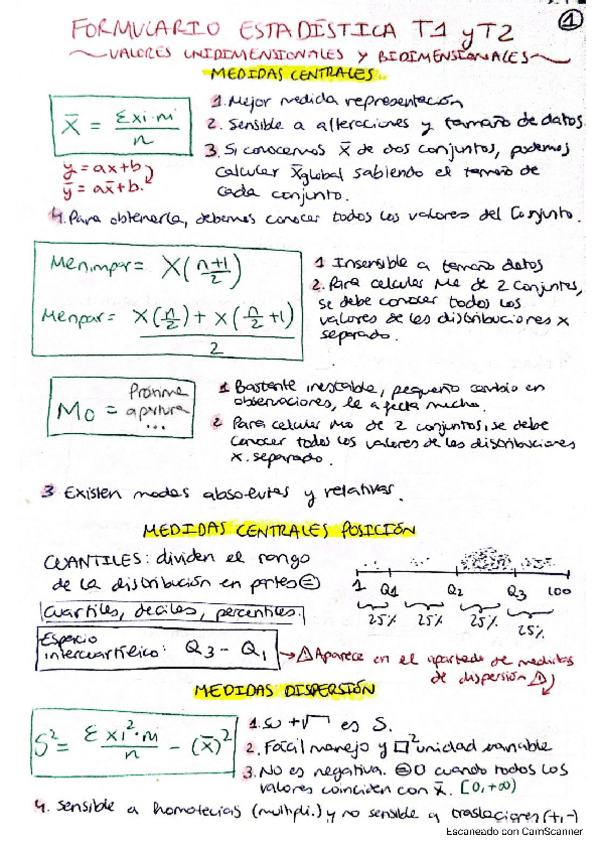 1
FORMULARIO ESTADÍSTICA T1 y T2
~VALORES UNIDIMENSIONALES Y BIDIMENSIONALES~
MEDIDAS CENTRALES
x̄ = Σxi·ni / n
y = ax+b
ȳ = ax̄+b.
1. Mejor medida representación
2. Sensible a alteraciones y tamaño de datos
3. Si conocemos x̄ de dos conjuntos, podemos
calcular x̄global sabiendo el tamaño de
cada conjunto.
4. Para obtenerla, debemos conocer todos los valores del Conjunto.
Me nimpar = X(n+1/2)
Me npar = X(n/2) + X(n/2 +1) / 2
1 Insensible a tamaño datos
2. Para calcular Me de 2 conjuntos,
se debe conocer todos los
valores de las distribuciones x
separado.
Mo = Próxima
apertura
...
1 Bastante inestable, pequeño cambio en
observaciones, le afecta mucho.
2 Para calcular Mo de 2 conjuntos, se debe
conocer todos los valores de las distribuciones
x. separado.
3 Existen modas absolutas y relativas.
MEDIDAS CENTRALES POSICIÓN
CUANTILES: dividen el rango
de la distribución en partes =
cuartiles, deciles, percentiles.
1 Q1 Q2 Q3 100
25% 25% 25% 25%
Espacio
intercuartílico: Q3 - Q1
→ ⚠ Aparece en el apartado de medidas
de dispersión ⚠
MEDIDAS DISPERSIÓN
S² = Σxi²·ni / n - (x̄)²
1. su +√ es S.
2. Fácil manejo y □² unidad variable
3. No es negativa. = 0 cuando todos los
valores coinciden con x̄. [0,+∞)
4. Sensible a homotecias (multipli.) y no sensible a traslaciones (+,-)
Escaneado con CamScanner